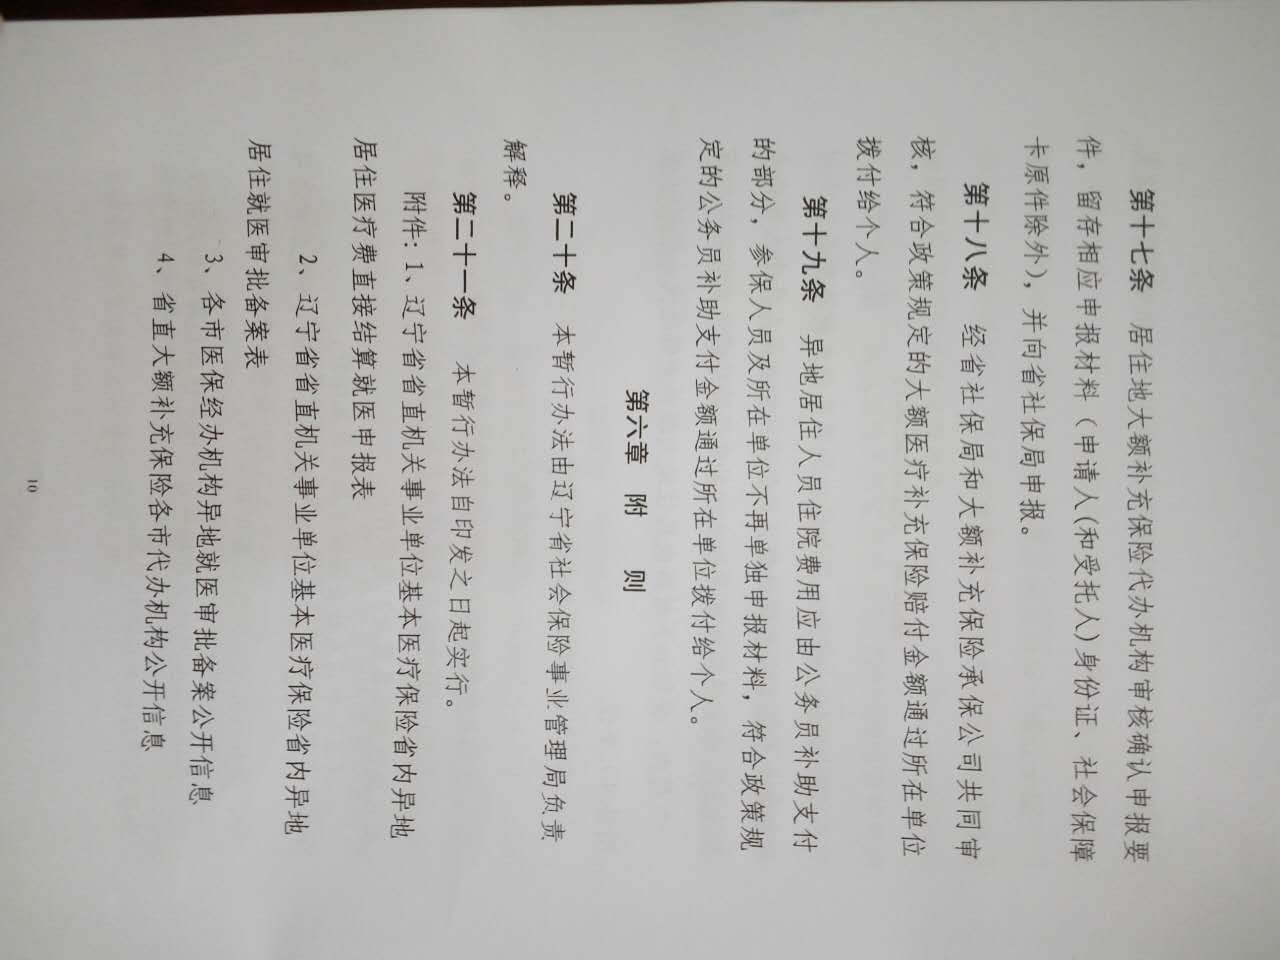 第十七条　居住地大额补充保险代办机构审核确认申报要
件，留存相应申报材料（申请人(和受托人)身份证、社会保障
卡原件除外），并向省社保局申报。
第十八条　经省社保局和大额补充保险承保公司共同审
核，符合政策规定的大额医疗补充保险赔付金额通过所在单位
拨付给个人。
第十九条　异地居住人员住院费用应由公务员补助支付
的部分，参保人员及所在单位不再单独申报材料，符合政策规
定的公务员补助支付金额通过所在单位拨付给个人。
第六章　附　则
第二十条　本暂行办法由辽宁省社会保险事业管理局负责
解释。
第二十一条　本暂行办法自印发之日起实行。
附件：1、辽宁省省直机关事业单位基本医疗保险省内异地
居住医疗费直接结算就医申报表
2、辽宁省省直机关事业单位基本医疗保险省内异地
居住就医审批备案表
3、各市医保经办机构异地就医审批备案公开信息
4、省直大额补充保险各市代办机构公开信息
10